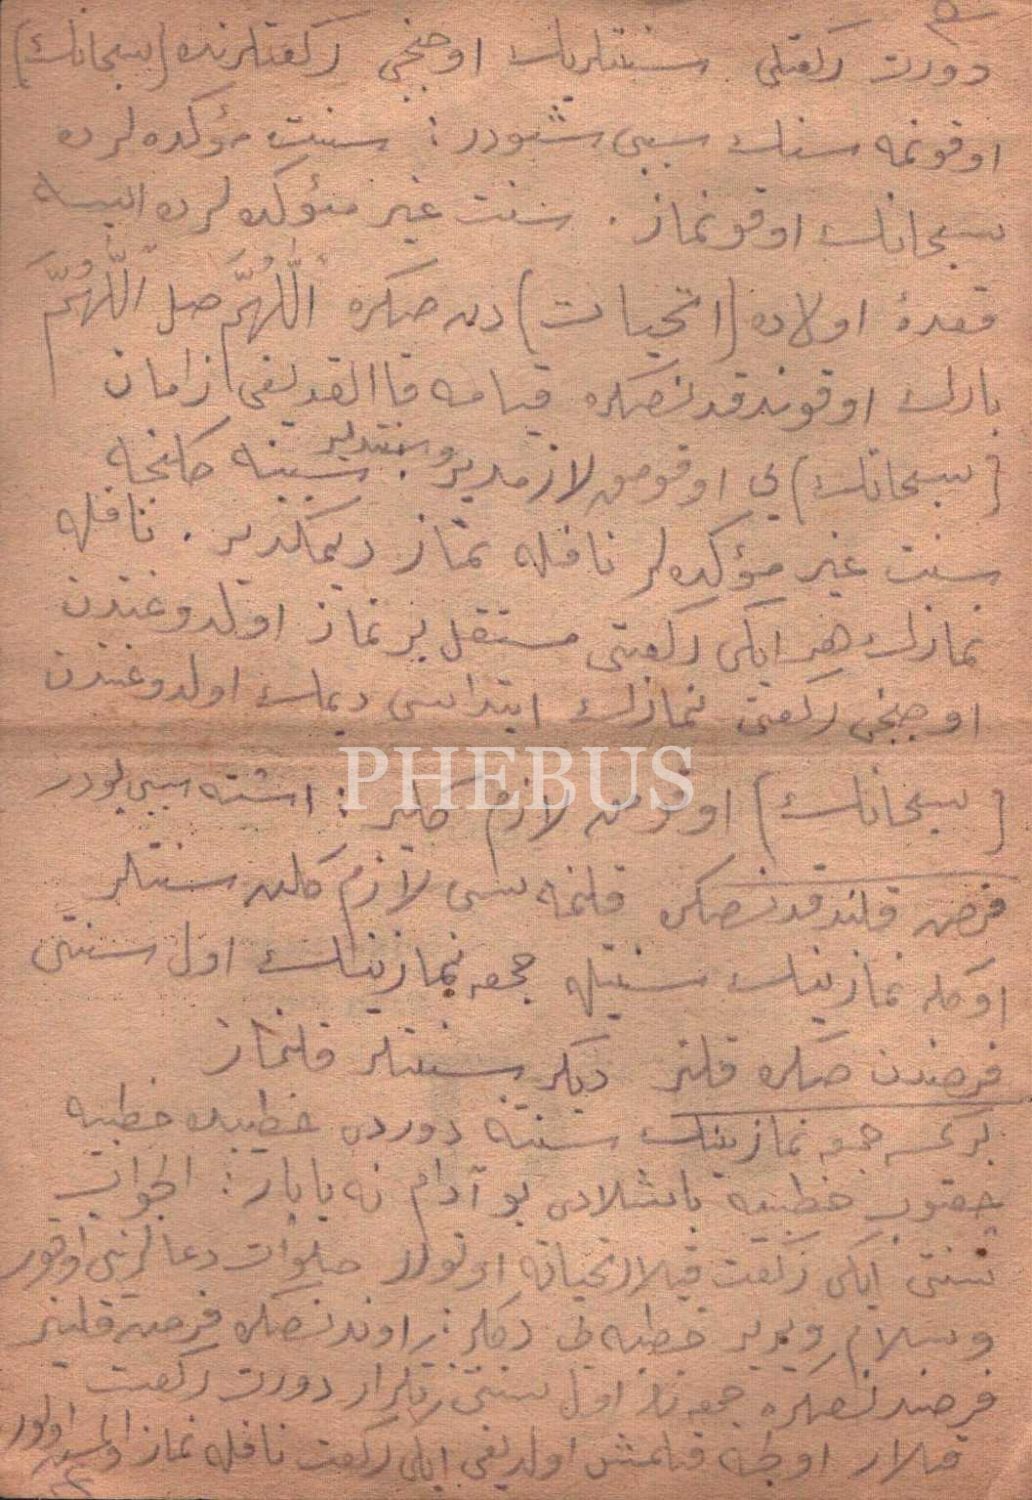 ٥
دورت ركعتلى سنتلرينك اوچنجى ركعتلرنده (سبحانك)
اوقونمه سنك سببى شودر : سنت مؤكده لرده
سبحانك اوقونماز . سنت غير مؤكده لرده ايسه
قعدۀ اولاده (التحيات) دن صكره اَللّٰهُمَّ صل اَللّٰهُمَّ
بارك اوقوندقدنصكره قيامه قالقديغى زامان
(سبحانك) ى اوقومق لازمدير وسنتدير . سببنه كلنجه
سنت غير مؤكده لر نافله نماز ديمكدير . نافله
نمازك هر ايكى ركعتى مستقل بر نماز اولدوغندن
اوچنجى ركعتى نمازك ابتداسى ديمك اولدوغندن
(سبحانك) اوقومق لازم كلير : اشته سببى بودر
فرض قلندقدنصكره قلنمه سى لازم كلن سنتلر
اوكله نمازينك سنتيله جمعه نمازينك اول سنتى
فرضندن صكره قلنر ديكر سنتلر قلنماز
بر كمسه جمعه نمازينك سنتنه دوردى خطيبده خطبه يه
چقوب خطبه يه باشلادى بو آدام نه ياپار : الجواب
سنتى ايكى ركعت قيلار تحياته اوتورر صلوات دعالرينى اوقور
وسلام ويرير خطبه يى دكلر : اوندنصكره فرض قلينير
فرضدنصكره جمعه نك اول سنتنى تكرار دورت ركعت
قيلار اولجه قيلمش اولديغى ايكى ركعت نافله نماز اولور